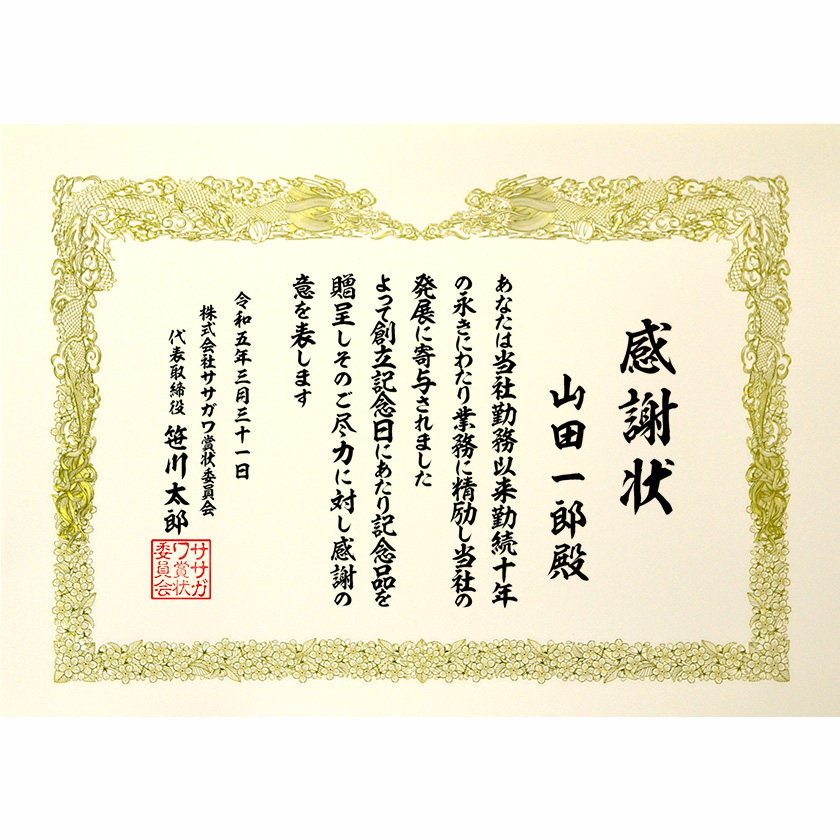 感謝状
山田一郎殿
あなたは当社勤務以来勤続十年
の永きにわたり業務に精励し当社の
発展に寄与されました
よって創立記念日にあたり記念品を
贈呈しそのご尽力に対し感謝の
意を表します
令和五年三月三十一日
株式会社ササガワ賞状委員会
代表取締役 笹川太郎
ササガ
ワ賞状
委員会